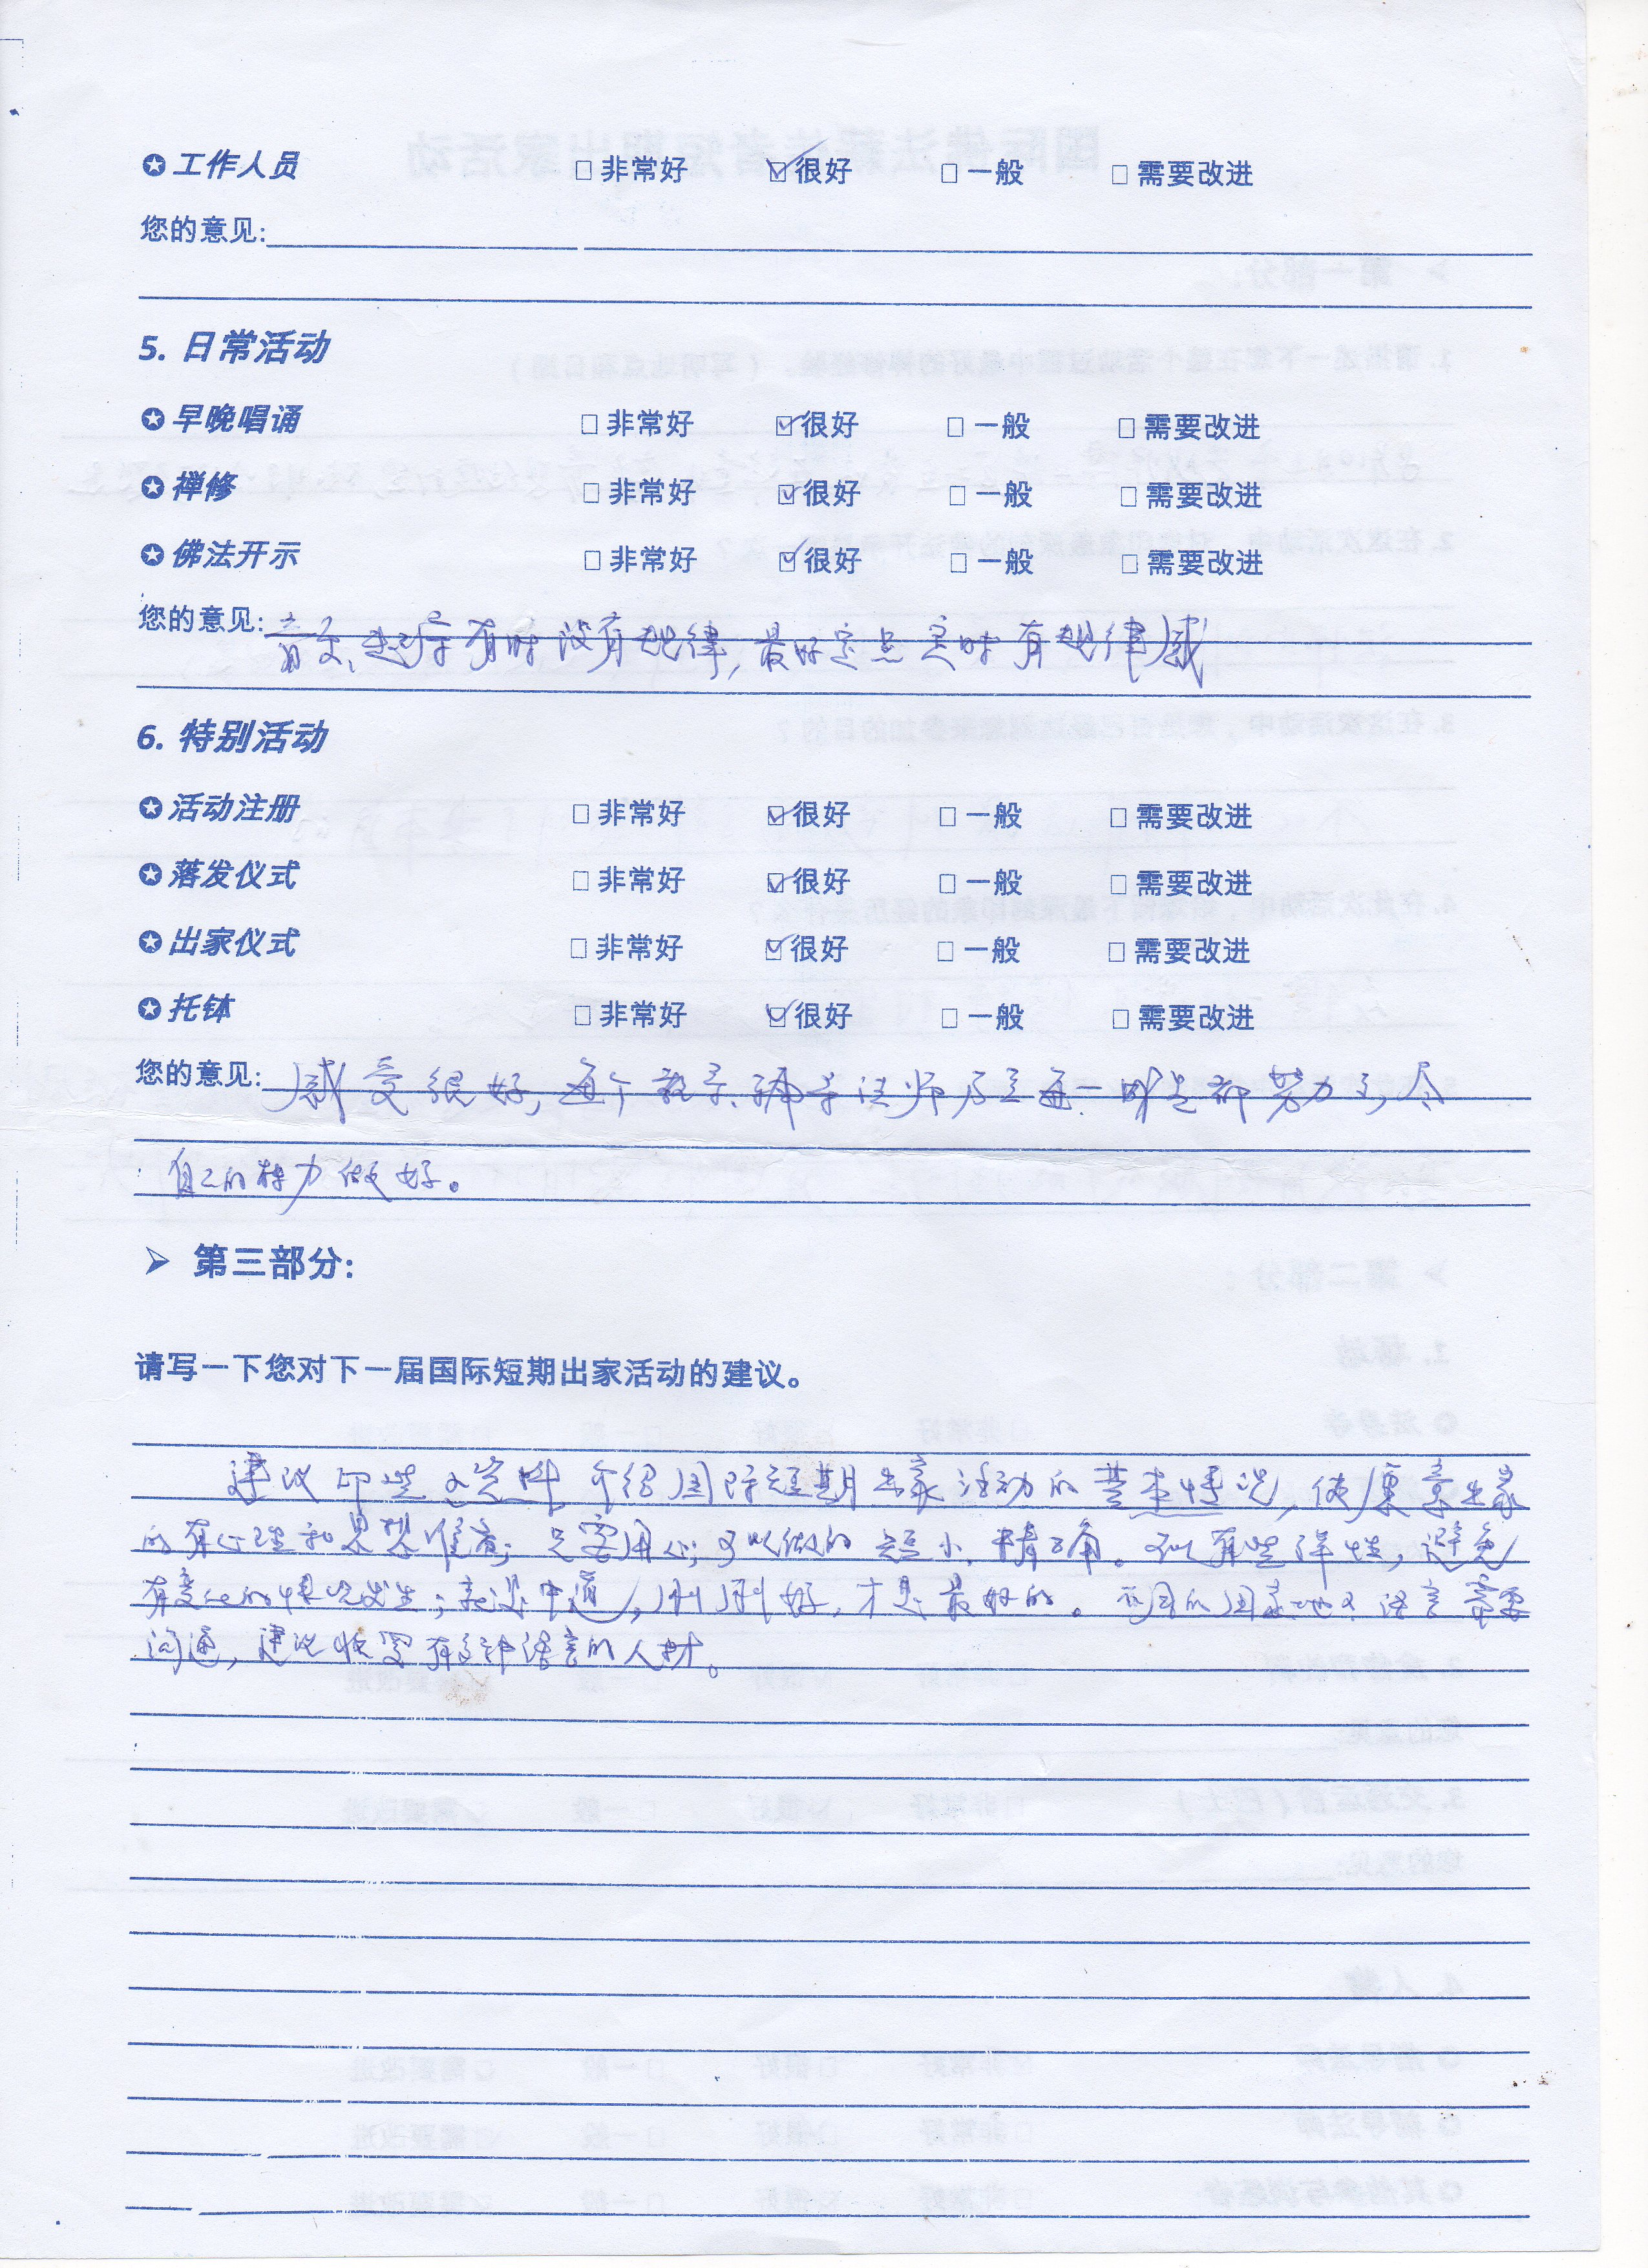 ✪工作人员 □非常好 ☑很好 □一般 □需要改进
您的意见:
5. 日常活动
✪早晚唱诵 □非常好 ☑很好 □一般 □需要改进
✪禅修 □非常好 ☑很好 □一般 □需要改进
✪佛法开示 □非常好 ☑很好 □一般 □需要改进
您的意见: 有时没有规律,最好定点定时有规律感
6. 特别活动
✪活动注册 □非常好 ☑很好 □一般 □需要改进
✪落发仪式 □非常好 ☑很好 □一般 □需要改进
✪出家仪式 □非常好 ☑很好 □一般 □需要改进
✪托钵 □非常好 ☑很好 □一般 □需要改进
您的意见: 感受很好,每个 辅导法师 都努力了,尽
自己的 力做好。
➢ 第三部分:
请写一下您对下一届国际短期出家活动的建议。
建议印些 资料 介绍国际短期出家活动的基本情况,使 出家
的有心理和思想准备;只要用心,可以做的短小、精 。 有些弹性,避免
有变化的情况发生;就是中道,刚刚好,才是最好的。不同的国家 语言需要
沟通,建议 有多种语言的人材。